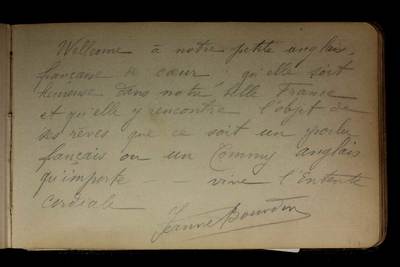 Wellcome à notre petite anglaise,
française de cœur ; qu'elle soit
heureuse dans notre belle France
et qu'elle y rencontre l'objet de
ses rêves que ce soit un poilu
français ou un Tommy anglais
qu'importe — vive l'Entente
cordiale
Jeanne Bourdin